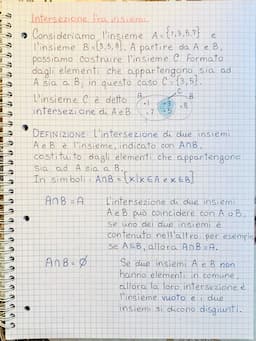 Intersezione fra insiemi
Consideriamo l'insieme A={1,3,5,7} e
l'insieme B={3,5,8}. A partire da A e B,
possiamo costruire l'insieme C formato
dagli elementi che appartengono sia ad
A sia a B; in questo caso C={3,5}.
L'insieme C è detto
intersezione di A e B.
A C B
•1 •3 •8
•7 •5
DEFINIZIONE: L'intersezione di due insiemi
A e B è l'insieme, indicato con A∩B,
costituito dagli elementi che appartengono
sia ad A sia a B.
In simboli: A∩B={x|x∈A e x∈B}
A∩B=A
L'intersezione di due insiemi
A e B può coincidere con A o B,
se uno dei due insiemi è
contenuto nell'altro: per esempio
se A⊆B, allora A∩B=A.
A∩B=Ø
Se due insiemi A e B non
hanno elementi in comune,
allora la loro intersezione è
l'insieme vuoto e i due
insiemi si dicono disgiunti.